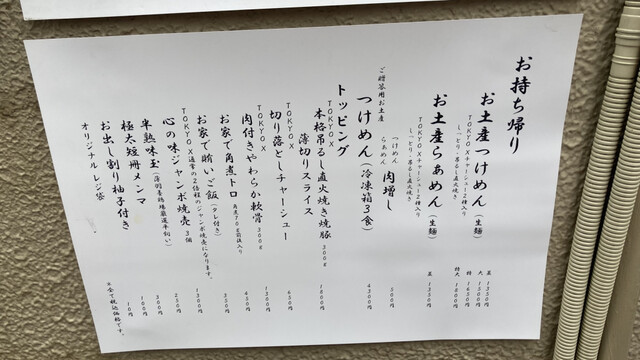 お持ち帰り
お土産つけめん（生麺）
TOKYO Xチャーシュー2種入り
しっとり・吊るし直火焼き
並 1350円
大 1500円
特 1650円
特大 1800円
お土産らあめん（生麺）
TOKYO Xチャーシュー2種入り
しっとり・吊るし直火焼き
並 1350円
つけめん
らぁめん
肉増し 500円
ご贈答用お土産
つけめん（冷凍箱3食） 4300円
トッピング
TOKYO X
本格吊るし直火焼き焼豚 300g 1800円
薄切りスライス
TOKYO X
切り落としチャーシュー 650円
TOKYO X
肉付きやわらか軟骨 300g 1200円
お家で角煮トロ 角煮70g前後入り 450円
お家で賄いご飯（タレ付き） 350円
TOKYO X通常の2倍程のジャンボ焼売になります。
心の味ジャンボ焼売 3個 1300円
半熟味玉 250円
極太短冊メンマ 300円
お出し割り柚子付き 100円
オリジナルレジ袋 10円
※全て税込価格です。